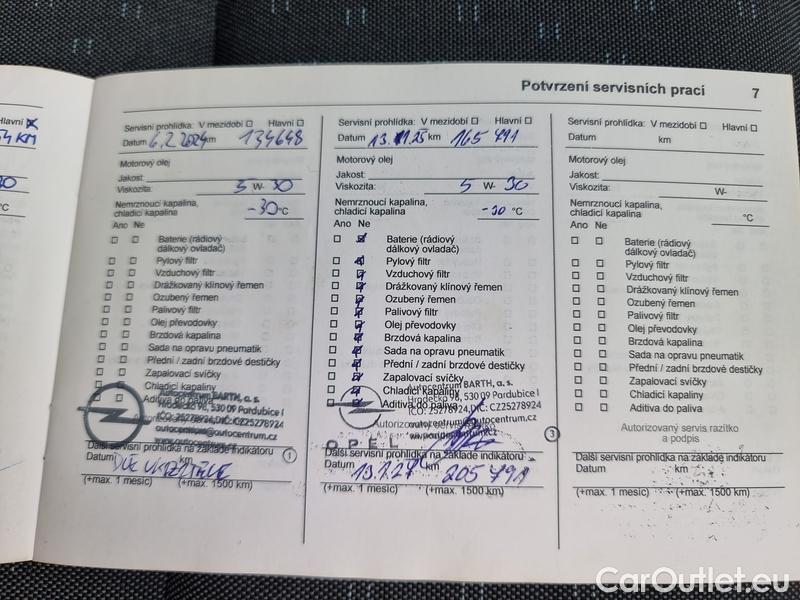 Potvrzení servisních prací 7
Hlavní
KM
Servisní prohlídka: V mezidobí ☐ Hlavní ☐
Datum 6.2.2024 km 134648
Motorový olej
Jakost:
Viskozita: 5 W- 30
Nemrznoucí kapalina,
chladicí kapalina -30 °C
Ano Ne
☐ ☐ Baterie (rádiový
dálkový ovladač)
☐ ☐ Pylový filtr
☐ ☐ Vzduchový filtr
☐ ☐ Drážkovaný klínový řemen
☐ ☐ Ozubený řemen
☐ ☐ Palivový filtr
☐ ☐ Olej převodovky
☐ ☐ Brzdová kapalina
☐ ☐ Sada na opravu pneumatik
☐ ☐ Přední / zadní brzdové destičky
☐ ☐ Zapalovací svíčky
☐ ☐ Chladicí kapaliny
☐ ☐ Aditiva do paliva
Autocentrum BARTH, a. s.
Hrodecká 98, 530 09 Pardubice I
IČO: 25278924, DIČ: CZ25278924
autocentrum@autocentrum.cz
www.autocentrum.cz
Další servisní prohlídka na základě indikátoru
Datum km
(+max. 1 měsíc) (+max. 1500 km)
1
Servisní prohlídka: V mezidobí ☐ Hlavní ☐
Datum 13. 25 km 165 791
Motorový olej
Jakost:
Viskozita: 5 W- 30
Nemrznoucí kapalina,
chladicí kapalina -30 °C
Ano Ne
Baterie (rádiový
dálkový ovladač)
Pylový filtr
Vzduchový filtr
Drážkovaný klínový řemen
Ozubený řemen
Palivový filtr
Olej převodovky
Brzdová kapalina
Sada na opravu pneumatik
Přední / zadní brzdové destičky
Zapalovací svíčky
Chladicí kapaliny
Aditiva do paliva
Autocentrum BARTH, a. s.
Hrodecká 98, 530 09 Pardubice I
IČO: 25278924, DIČ: CZ25278924
autocentrum@autocentrum.cz
OPEL
Další servisní prohlídka na základě indikátoru
Datum 13.1.27 km 205 791
(+max. 1 měsíc) (+max. 1500 km)
3
Servisní prohlídka: V mezidobí ☐ Hlavní ☐
Datum km
Motorový olej
Jakost:
Viskozita: W-
Nemrznoucí kapalina,
chladicí kapalina °C
Ano Ne
☐ ☐ Baterie (rádiový
dálkový ovladač)
☐ ☐ Pylový filtr
☐ ☐ Vzduchový filtr
☐ ☐ Drážkovaný klínový řemen
☐ ☐ Ozubený řemen
☐ ☐ Palivový filtr
☐ ☐ Olej převodovky
☐ ☐ Brzdová kapalina
☐ ☐ Sada na opravu pneumatik
☐ ☐ Přední / zadní brzdové destičky
☐ ☐ Zapalovací svíčky
☐ ☐ Chladicí kapaliny
☐ ☐ Aditiva do paliva
Autorizovaný servis razítko
a podpis
Další servisní prohlídka na základě indikátoru
Datum km
(+max. 1 měsíc) (+max. 1500 km)
CarOutlet.eu